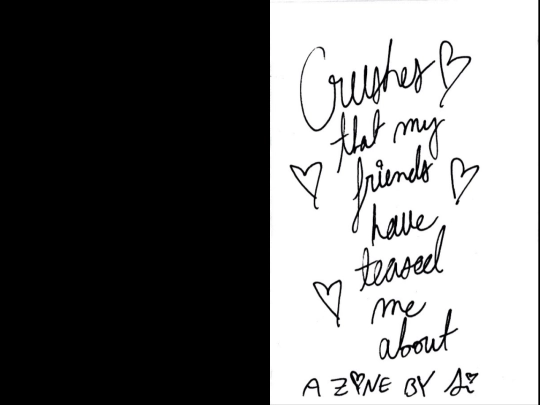 Crushes
that my
friends
have
teased
me
about
A ZINE BY Si